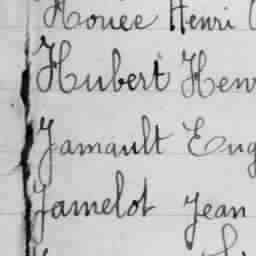 Houée Henri
Hubert Hen
Jamault Eug
Jamelot Jean